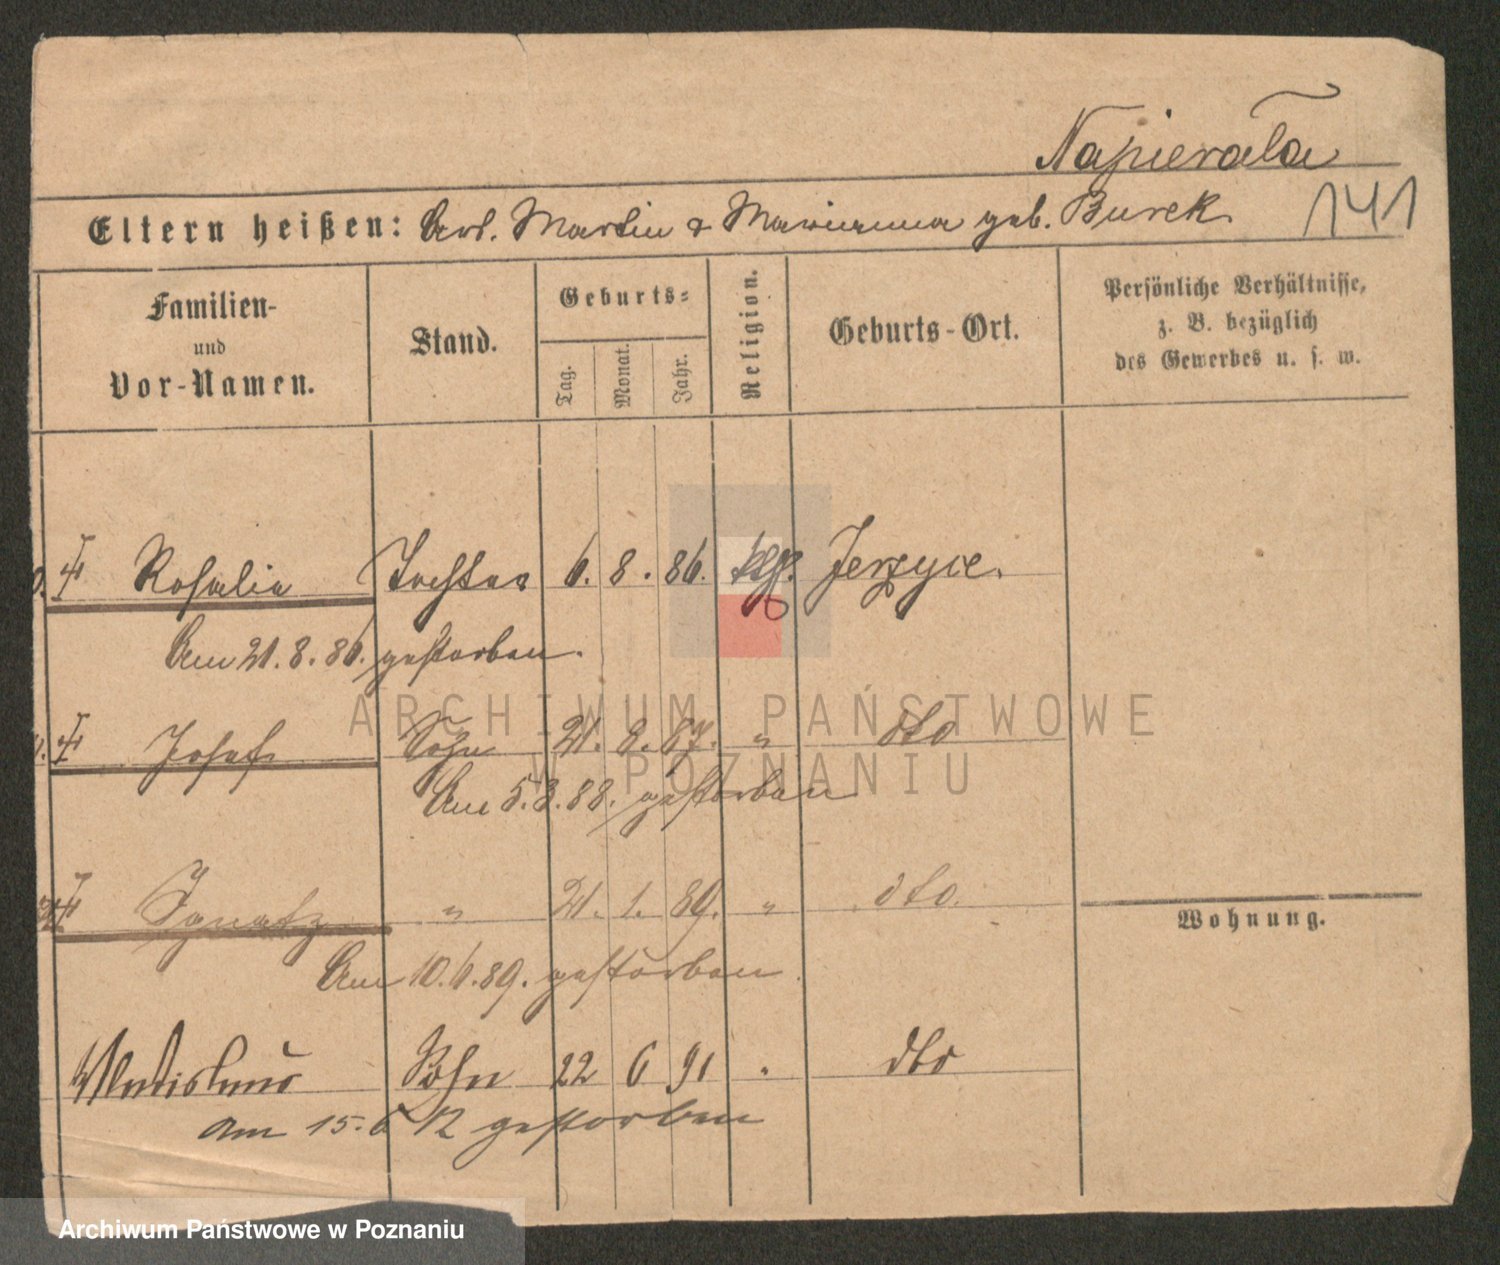 Napierała
Eltern heißen: Arb. Martin & Marianna geb. Burek
141
Familien-
und
Vor-Namen.
Stand.
Geburts-
Tag.
Monat.
Jahr.
Religion.
Geburts-Ort.
Persönliche Verhältnisse,
z. B. bezüglich
des Gewerbes u. s. w.
Rosalie Tochter 6. 8. 86. kth. Jerzyce.
Am 21. 8. 86. gestorben.
Josef Sohn 21. 2. 87. " dto
Am 5. 3. 88. gestorben
Ignatz " 21. 1. 89. " dto.
Wohnung.
Am 10. 6. 89. gestorben.
Wladislaus Sohn 22 6 91 " dto
am 15. 6 12 gestorben
ARCHIWUM PAŃSTWOWE
W POZNANIU
Archiwum Państwowe w Poznaniu